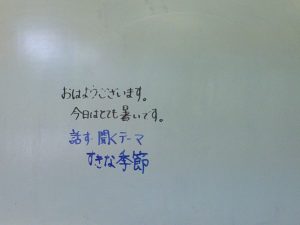 おはようございます。
今日はとても暑いです。
話す・聞くテーマ
すきな季節